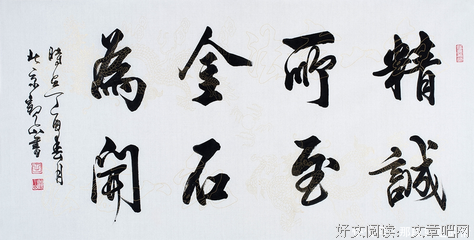 精誠
所至
金石
為開
時在丁酉春月
北京觀山書
好文阅读:文章吧网